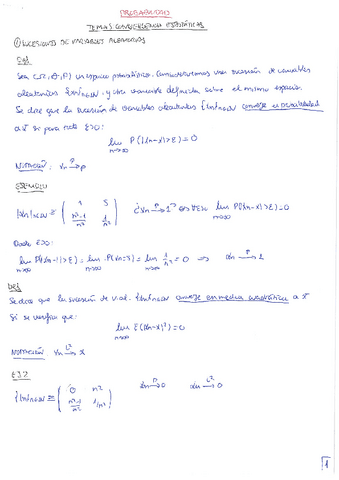 PROBABILIDAD
TEMA 5 CONVERGENCIA ESTOCÁSTICAS
① SUCESIONES DE VARIABLES ALEATORIAS
Def
Sea (Ω, A, P) un espacio probabilístico. Consideremos una sucesión de variables
aleatorias {Xn}n∈N y otra variable definida sobre el mismo espacio.
Se dice que la sucesión de variables aleatorias {Xn}n∈N converge en probabilidad
a X si para todo ε>0:
lim P(|Xn-X|>ε)=0
n→∞
NOTACIÓN: Xn→p
EJEMPLO
{Xn}n∈N ≡ ( 1 5
n²-1/n² 1/n² ) ¿Xn →P 1? ⇔ ∀ε>0 lim P(|Xn-X|>ε)=0
n→∞
Dado ε>0:
lim P(|Xn-1|>ε) = lim P(Xn=5) = lim 1/n² = 0 ⇒ Xn →P 1
n→∞ n→∞ n→∞
Def
Se dice que la sucesión de v.al. {Xn}n∈N converge en media cuadrática a X
si se verifica que:
lim E(|Xn-X|²)=0
n→∞
NOTACIÓN Xn →L² X
EJ2
{Xn}n∈N ≡ ( 0 n²
n²-1/n² 1/n² ) Xn →P 0 Xn →L² 0
1